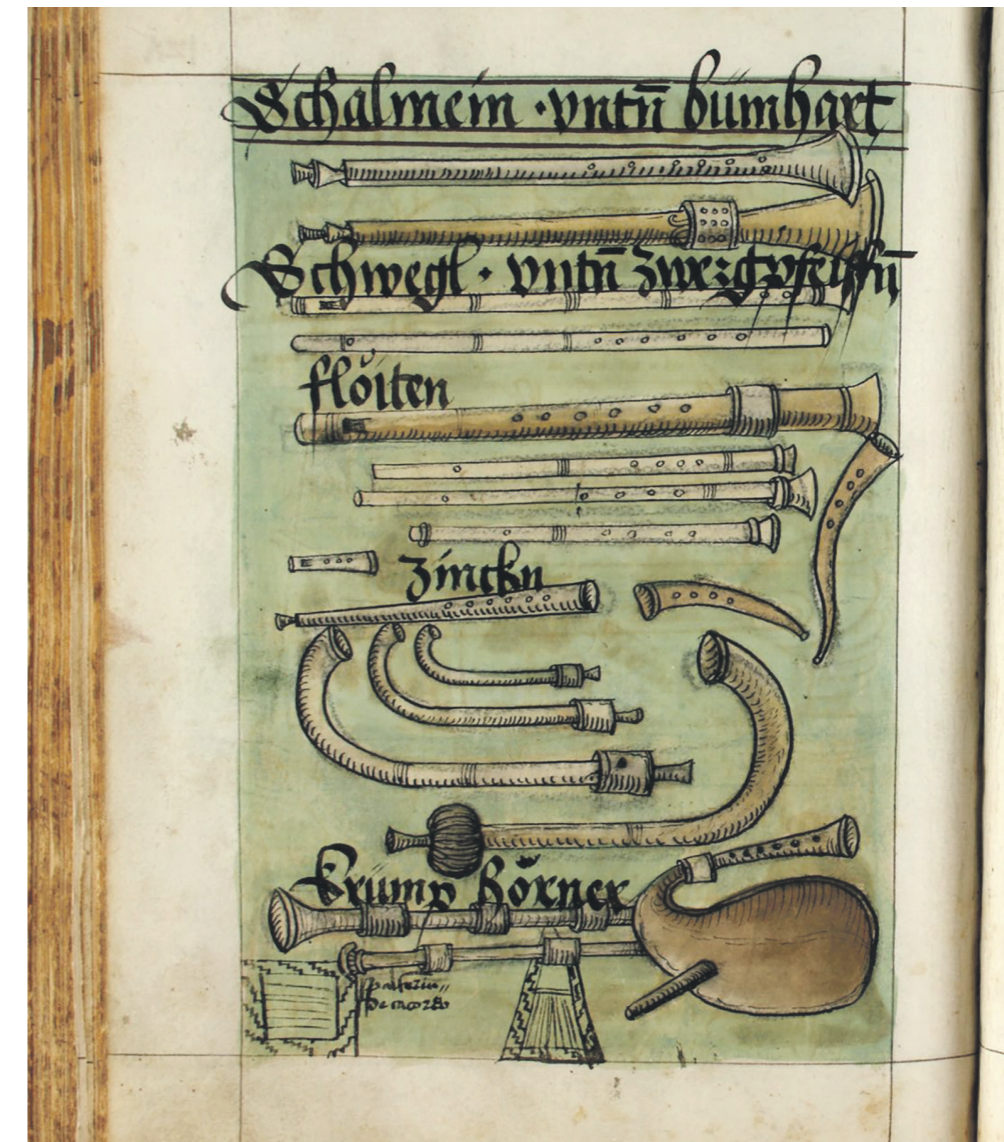 Schalmein · vntn̄ bumhart
Schwegl · vntn̄ zwergpfeiffn̄
flöiten
zinckn
krump hörner